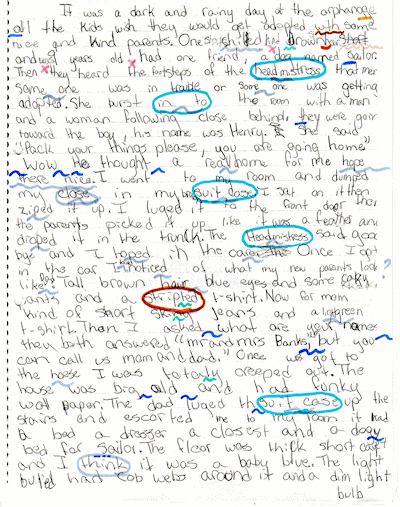 It was a dark and rainy day at the orphanage
all the kids wish they would get adopted with some
nice and kind parents. One had brown hair short
and was years old had one friend, a dog named Sailor.
Then they heard the footsteps of the headmistress that mer
some one was in trable or some one was getting
adopted. She burst in to the room with a man
and a woman following close behind, they were going
toward the boy, his name was Henry. She said
"Pack your things please, you are going home"
Wow he thought, a real home for me hope
there nice. I went to my room and dumped
my close in my suit case I sat on it then
ziped it up. I luged it to the front door then
the parents picked it up like it was a feather and
droped it in the trunk. The Headmistress said good
bye and I hoped in the car. Once I got
in the car I noticed of what my new parents look
like. Tall brown hair blue eyes and some caky
pants and a stripted t-shirt. Now for mom
kind of short jeans and a green
t-shirt. Then I asked what are your names
they both answered "mr and mrs Banks", but you
can call us mom and dad." Once we got to
the house I was totaly creeped out. The
house was big old and had funky
wall paper. The dad luged the suit case up the
stairs and escorted me to my room it had
a bed a dresser a closest and a doggy
bed for Sailor. The floor was thick short carpet
and I think it was a baby blue. The light
had cob webs around it and a dim light
bulb